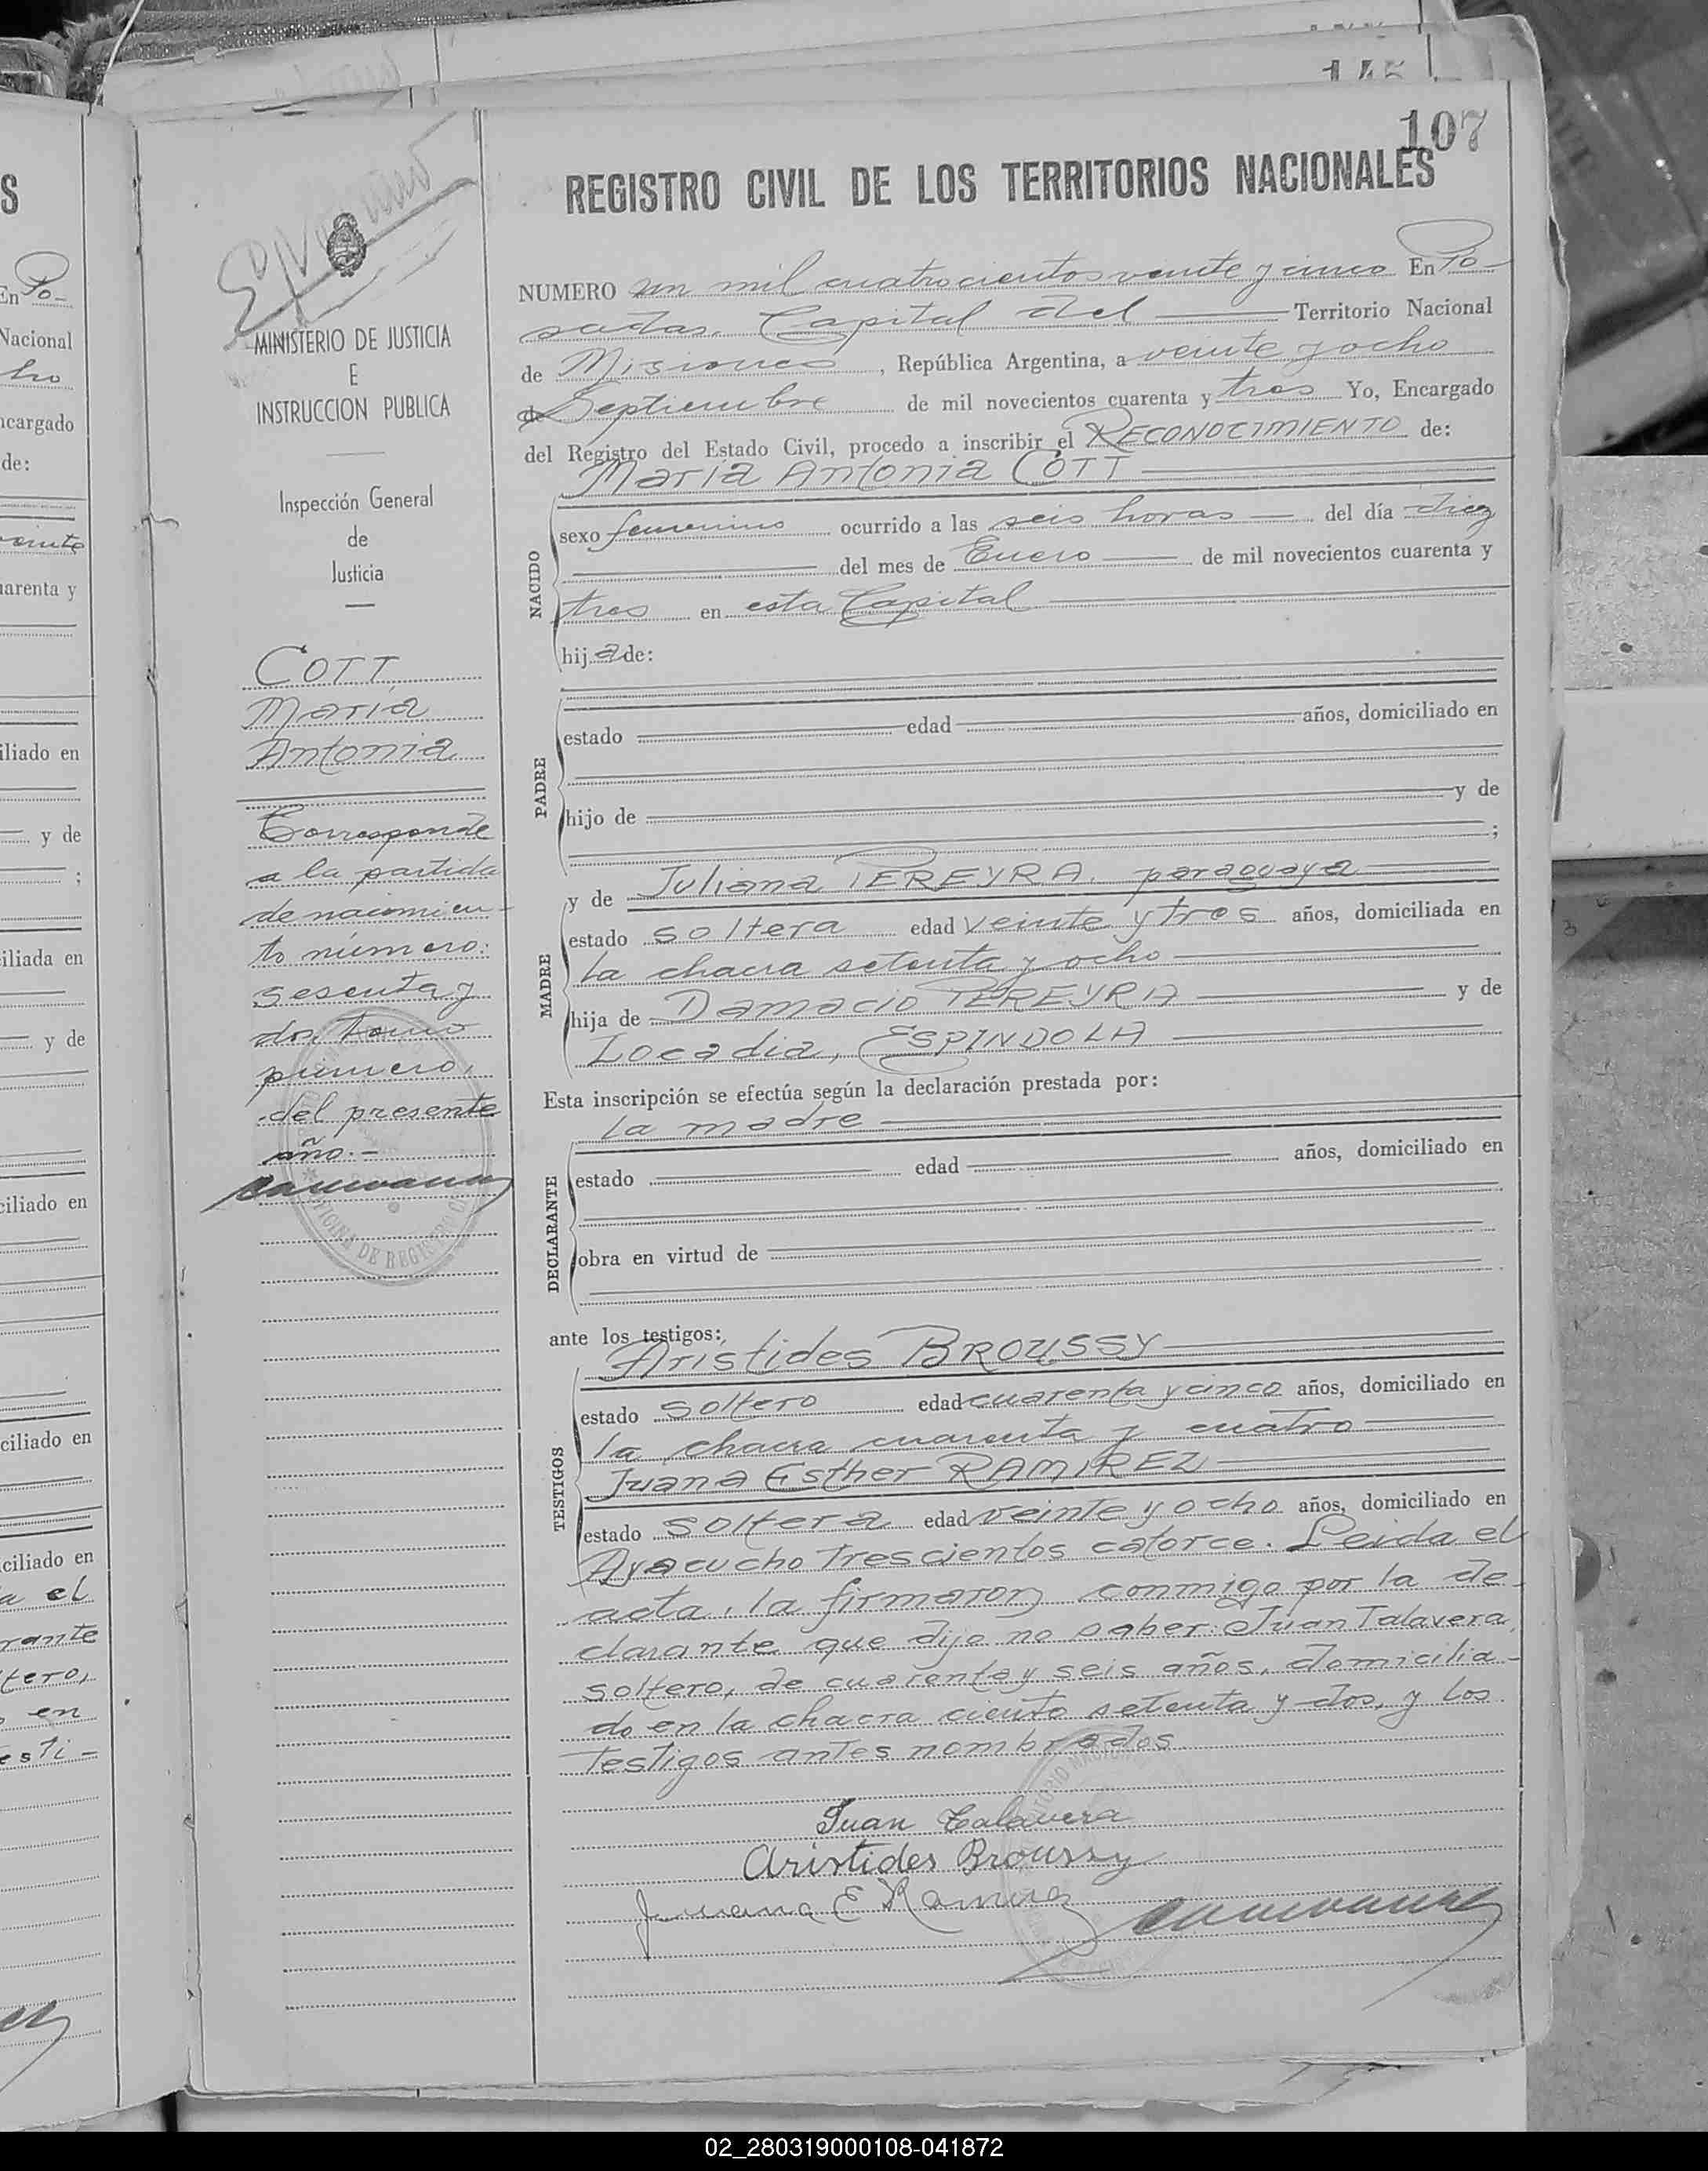 145
107
REGISTRO CIVIL DE LOS TERRITORIOS NACIONALES
NUMERO un mil cuatrocientos veinte y cinco En Po-
sadas. Capital del Territorio Nacional
de Misiones, República Argentina, a veinte y ocho
de Septiembre de mil novecientos cuarenta y tres Yo, Encargado
del Registro del Estado Civil, procedo a inscribir el RECONOCIMIENTO de:
Maria Antonia COTT
NACIDO
sexo femenino ocurrido a las seis horas del día diez
del mes de Enero de mil novecientos cuarenta y
tres en esta Capital
hija de:
PADRE
estado edad años, domiciliado en
hijo de y de
;
MADRE
y de Juliana PEREYRA. paraguaya
estado soltera edad veinte y tres años, domiciliada en
la chacra setenta y ocho
hija de Damacio PEREYRA y de
Locadia, ESPINDOLA
Esta inscripción se efectúa según la declaración prestada por:
la madre
DECLARANTE
estado edad años, domiciliado en
obra en virtud de
ante los testigos:
TESTIGOS
Aristides BROUSSY
estado soltero edad cuarenta y cinco años, domiciliado en
la chacra cuarenta y cuatro
Juana Esther RAMIREZ
estado soltera edad veinte y ocho años, domiciliado en
Ayacucho trescientos catorce. Leida el
acta, la firmaron conmigo por la de-
clarante que dijo no saber: Juan Talavera,
soltero, de cuarenta y seis años, domicilia-
do en la chacra ciento setenta y dos, y los
testigos antes nombrados
Juan Talavera
Aristides Broussy
Juana E Ramirez
MINISTERIO DE JUSTICIA
E
INSTRUCCION PUBLICA
Inspección General
de
Justicia
COTT,
Maria
Antonia
Corresponde
a la partida
de nacimien-
to número:
sesenta y
dos, tomo
primero,
del presente
año.-
S
En Po-
Nacional
cho
ncargado
de:
veinte
uarenta y
iliado en
y de
;
iliada en
y de
ciliado en
ciliado en
ciliado en
a el
rante
tero,
en
esti-
02_280319000108-041872